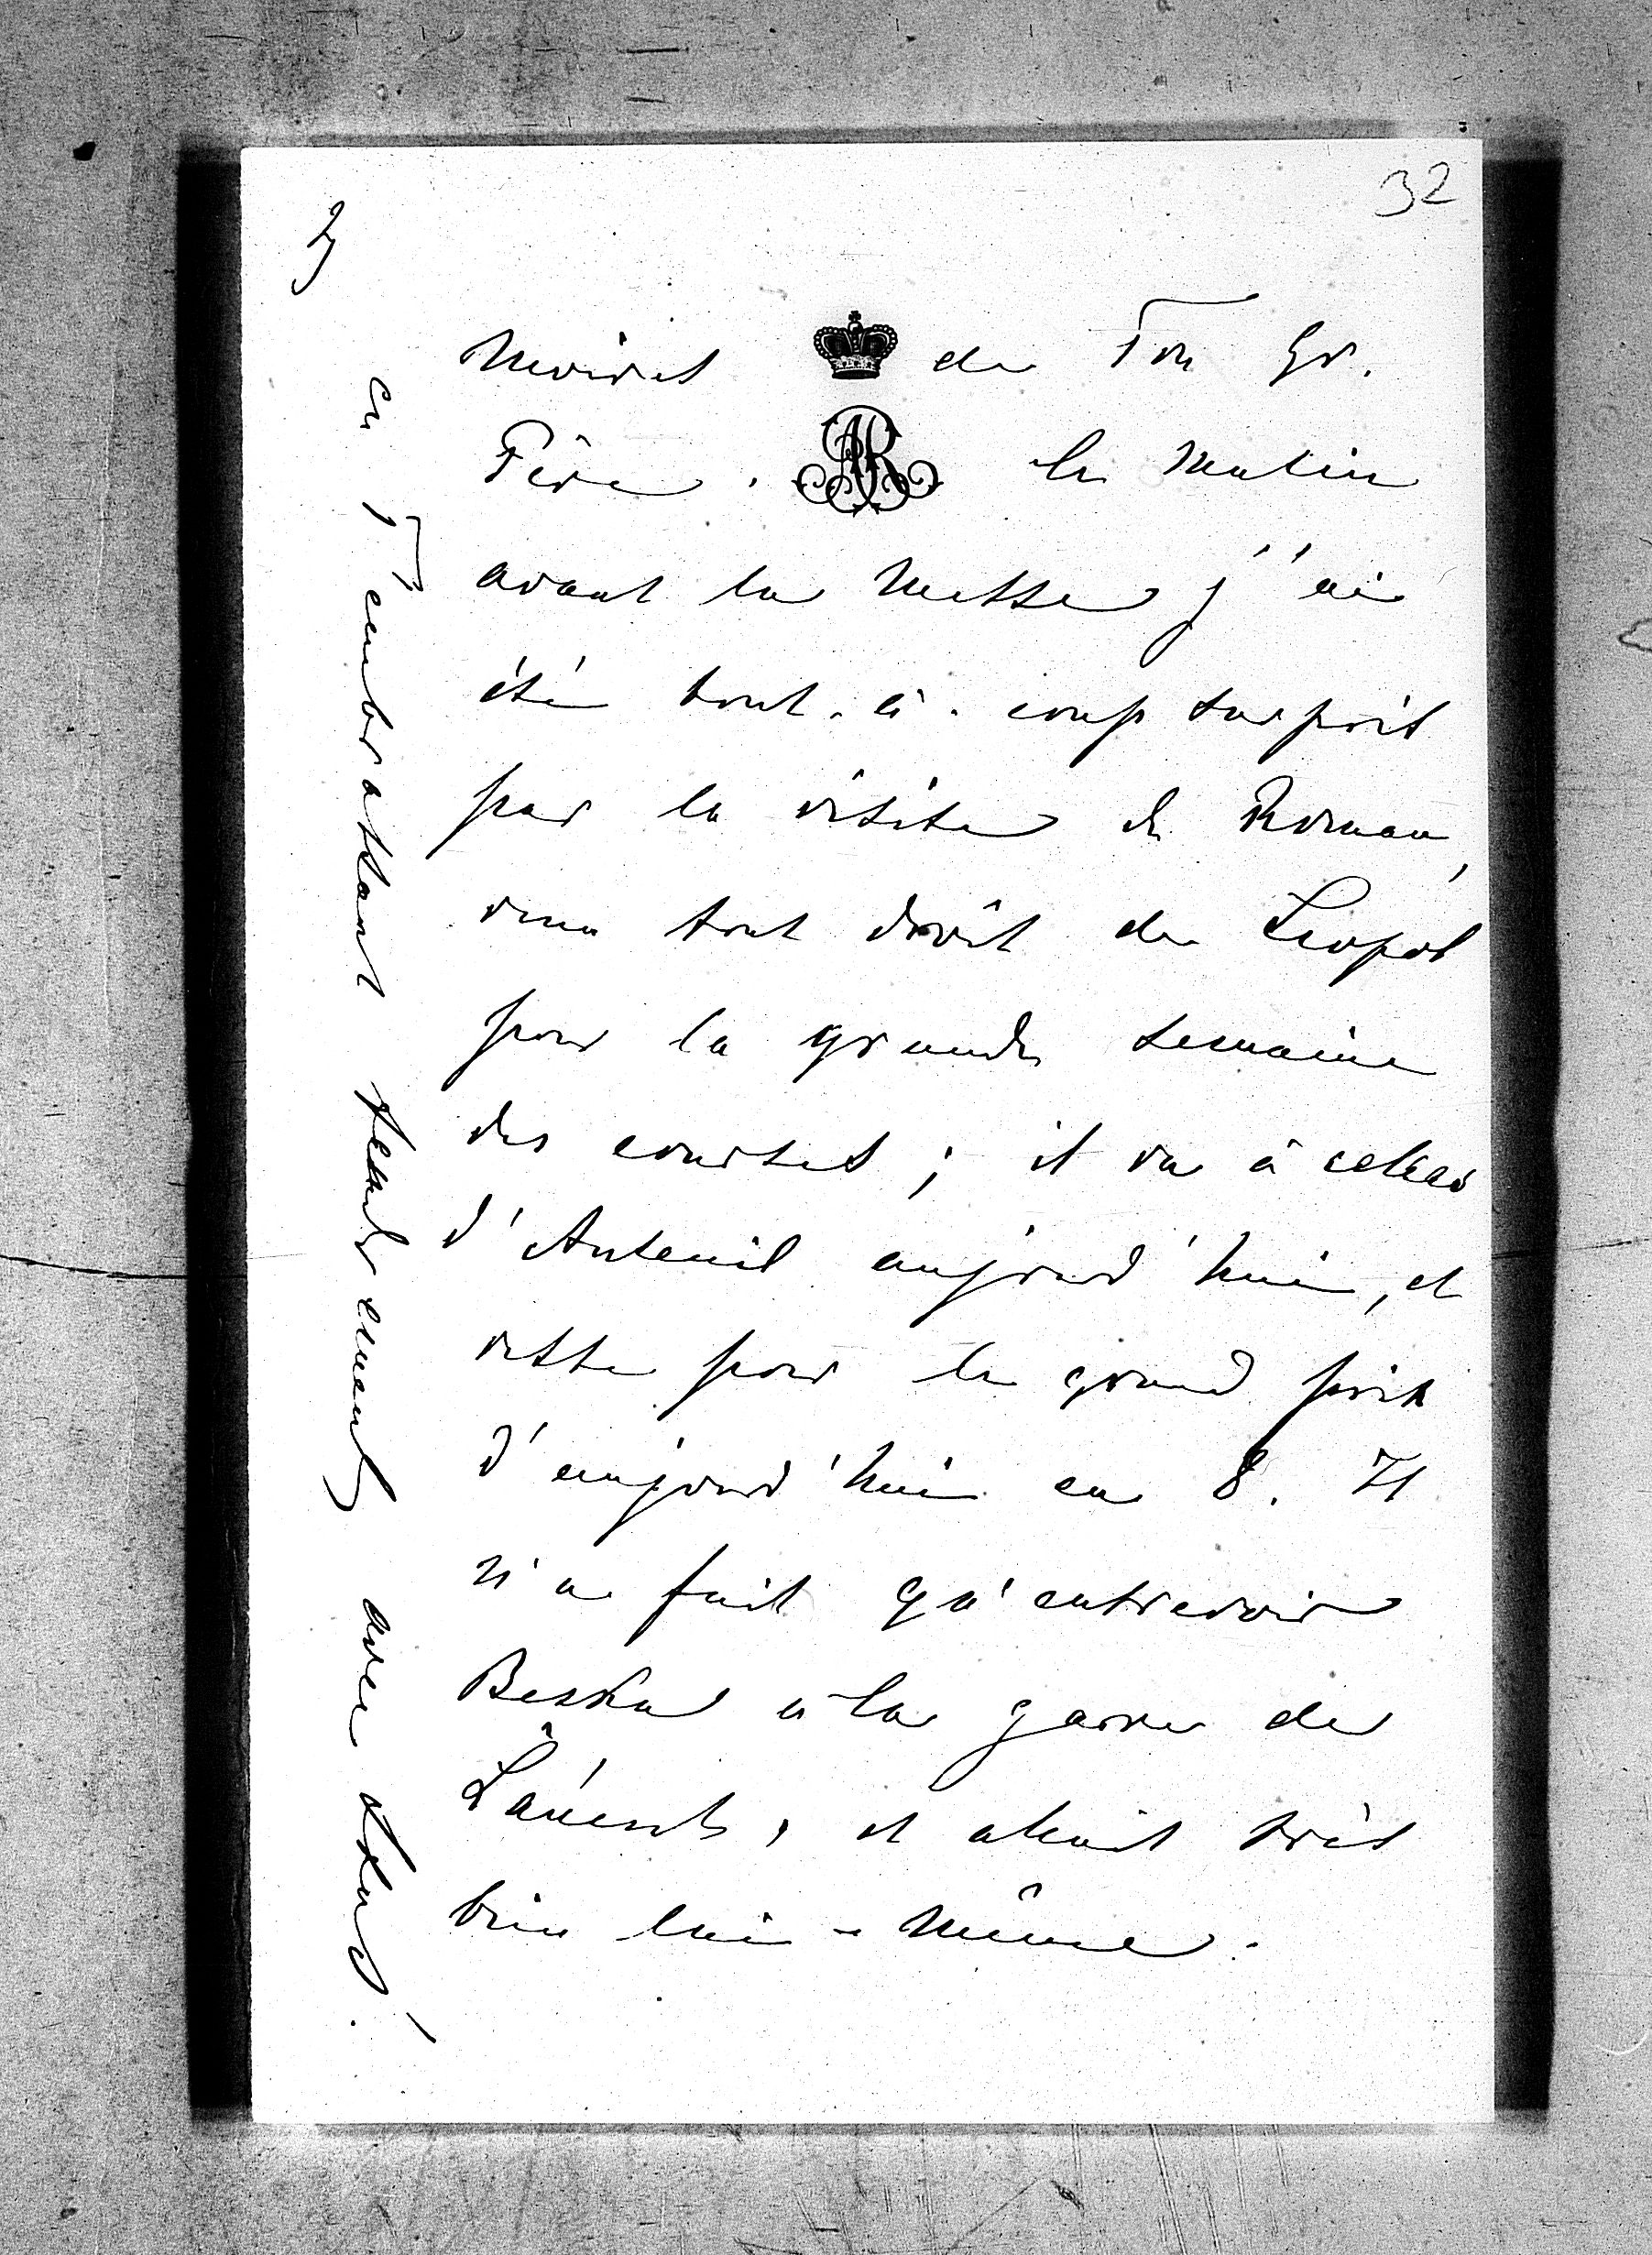 32
2)
Moires de Ton Gr.
Père. Ce matin
avant la Messe j'ai
été tout-à-coup surpris
par la visite de Roman,
venu tout droit de Léopol
pour la grande semaine
des courses; il va à celles
d'Auteuil aujourd'hui, et
reste pour le grand prix
d'aujourd'hui en 8. Il
n'a fait qu'entrevoir
à la gare de
Łańcut, et allait très
bien lui-même.
en T'embrassant tendrement, avec